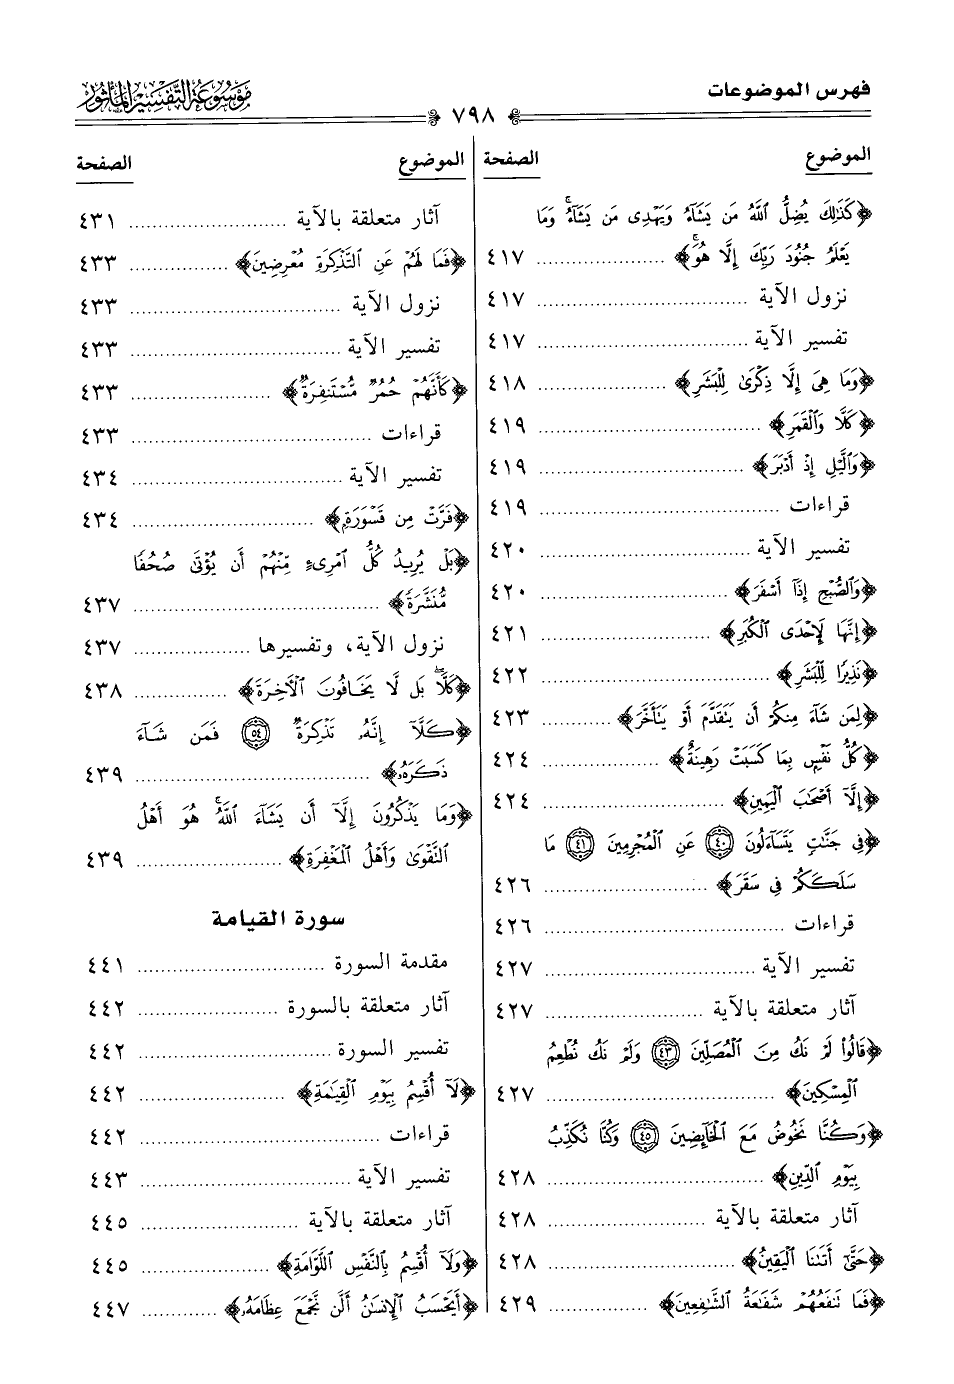 فهرس الموضوعات
موسوعة التفسير المأثور
٧٩٨
الموضوع الصفحة
﴿كَذَٰلِكَ يُضِلُّ ٱللَّهُ مَن يَشَآءُ وَيَهْدِى مَن يَشَآءُ ۚ وَمَا
يَعْلَمُ جُنُودَ رَبِّكَ إِلَّا هُوَ ۚ﴾ ........ ٤١٧
نزول الآية ........ ٤١٧
تفسير الآية ........ ٤١٧
﴿وَمَا هِىَ إِلَّا ذِكْرَىٰ لِلْبَشَرِ﴾ ........ ٤١٨
﴿كَلَّا وَٱلْقَمَرِ﴾ ........ ٤١٩
﴿وَٱلَّيْلِ إِذْ أَدْبَرَ﴾ ........ ٤١٩
قراءات ........ ٤١٩
تفسير الآية ........ ٤٢٠
﴿وَٱلصُّبْحِ إِذَآ أَسْفَرَ﴾ ........ ٤٢٠
﴿إِنَّهَا لَإِحْدَى ٱلْكُبَرِ﴾ ........ ٤٢١
﴿نَذِيرًا لِّلْبَشَرِ﴾ ........ ٤٢٢
﴿لِمَن شَآءَ مِنكُمْ أَن يَتَقَدَّمَ أَوْ يَتَأَخَّرَ﴾ ........ ٤٢٣
﴿كُلُّ نَفْسٍۭ بِمَا كَسَبَتْ رَهِينَةٌ﴾ ........ ٤٢٤
﴿إِلَّآ أَصْحَٰبَ ٱلْيَمِينِ﴾ ........ ٤٢٤
﴿فِى جَنَّٰتٍ يَتَسَآءَلُونَ ٤٠ عَنِ ٱلْمُجْرِمِينَ ٤١ مَا
سَلَكَكُمْ فِى سَقَرَ﴾ ........ ٤٢٦
قراءات ........ ٤٢٦
تفسير الآية ........ ٤٢٧
آثار متعلقة بالآية ........ ٤٢٧
﴿قَالُوا۟ لَمْ نَكُ مِنَ ٱلْمُصَلِّينَ ٤٣ وَلَمْ نَكُ نُطْعِمُ
ٱلْمِسْكِينَ﴾ ........ ٤٢٧
﴿وَكُنَّا نَخُوضُ مَعَ ٱلْخَآئِضِينَ ٤٥ وَكُنَّا نُكَذِّبُ
بِيَوْمِ ٱلدِّينِ﴾ ........ ٤٢٨
آثار متعلقة بالآية ........ ٤٢٨
﴿حَتَّىٰٓ أَتَىٰنَا ٱلْيَقِينُ﴾ ........ ٤٢٨
﴿فَمَا تَنفَعُهُمْ شَفَٰعَةُ ٱلشَّٰفِعِينَ﴾ ........ ٤٢٩
الموضوع الصفحة
آثار متعلقة بالآية ........ ٤٣١
﴿فَمَا لَهُمْ عَنِ ٱلتَّذْكِرَةِ مُعْرِضِينَ﴾ ........ ٤٣٣
نزول الآية ........ ٤٣٣
تفسير الآية ........ ٤٣٣
﴿كَأَنَّهُمْ حُمُرٌ مُّسْتَنفِرَةٌ﴾ ........ ٤٣٣
قراءات ........ ٤٣٣
تفسير الآية ........ ٤٣٤
﴿فَرَّتْ مِن قَسْوَرَةٍۭ﴾ ........ ٤٣٤
﴿بَلْ يُرِيدُ كُلُّ ٱمْرِئٍ مِّنْهُمْ أَن يُؤْتَىٰ صُحُفًا
مُّنَشَّرَةً﴾ ........ ٤٣٧
نزول الآية، وتفسيرها ........ ٤٣٧
﴿كَلَّا ۖ بَل لَّا يَخَافُونَ ٱلْءَاخِرَةَ﴾ ........ ٤٣٨
﴿كَلَّآ إِنَّهُۥ تَذْكِرَةٌ ٥٤ فَمَن شَآءَ
ذَكَرَهُۥ﴾ ........ ٤٣٩
﴿وَمَا يَذْكُرُونَ إِلَّآ أَن يَشَآءَ ٱللَّهُ ۚ هُوَ أَهْلُ
ٱلتَّقْوَىٰ وَأَهْلُ ٱلْمَغْفِرَةِ﴾ ........ ٤٣٩
سورة القيامة
مقدمة السورة ........ ٤٤١
آثار متعلقة بالسورة ........ ٤٤٢
تفسير السورة ........ ٤٤٢
﴿لَآ أُقْسِمُ بِيَوْمِ ٱلْقِيَٰمَةِ﴾ ........ ٤٤٢
قراءات ........ ٤٤٢
تفسير الآية ........ ٤٤٣
آثار متعلقة بالآية ........ ٤٤٥
﴿وَلَآ أُقْسِمُ بِٱلنَّفْسِ ٱللَّوَّامَةِ﴾ ........ ٤٤٥
﴿أَيَحْسَبُ ٱلْإِنسَٰنُ أَلَّن نَّجْمَعَ عِظَامَهُۥ﴾ ........ ٤٤٧